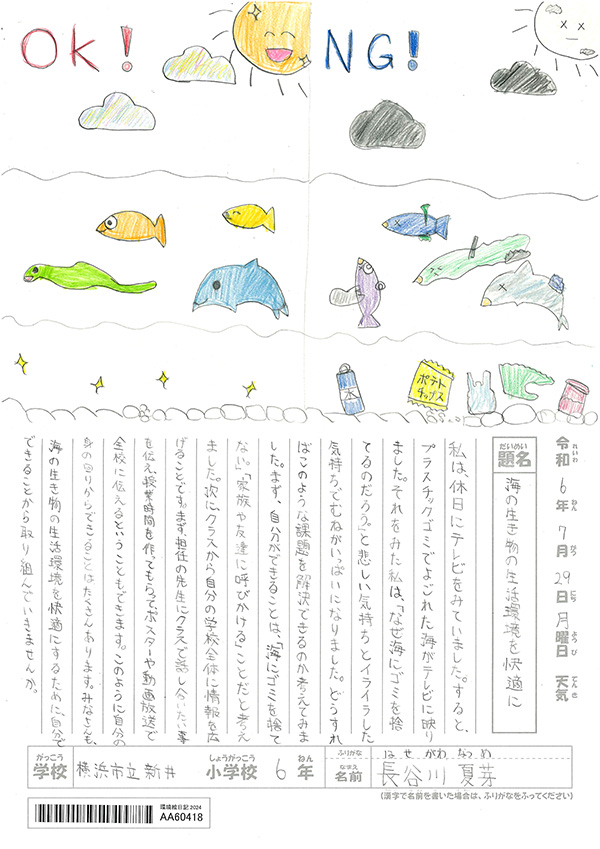 OK!
NG!
ポテト
チップス
令和6年7月29日月曜日 天気
れいわ ねん がつ にち ようび てんき
だいめい
題名
海の生き物の生活環境を快適に
私は、休日にテレビをみていました。すると、
プラスチックゴミでよごれた海がテレビに映り
ました。それをみた私は、「なぜ海にゴミを捨
てるのだろう。」と悲しい気持ちとイライラした
気持ちでむねがいっぱいになりました。どうすれ
ばこのような課題を解決できるのか考えてみま
した。まず、自分ができることは、「海にゴミを捨て
ない。」「家族や友達に呼びかける」ことだと考え
ました。次にクラスから自分の学校全体に情報を広
げることです。まず担任の先生にクラスで話し合いたい事
を伝え、授業時間を作ってもらってポスターや動画放送で
全校に伝えるということもできます。このように自分の
身の回りからできることはたくさんあります。みなさんも、
海の生き物の生活環境を快適にするために、自分で
できることから取り組んでいきませんか。
がっこう
学校
横浜市立 新井
しょうがっこう
小学校
6
ねん
年
ふりがな
は せ がわ なつ め
なまえ
名前
長谷川 夏芽
(漢字で名前を書いた場合は、ふりがなをふってください)
環境絵日記 2024
AA60418